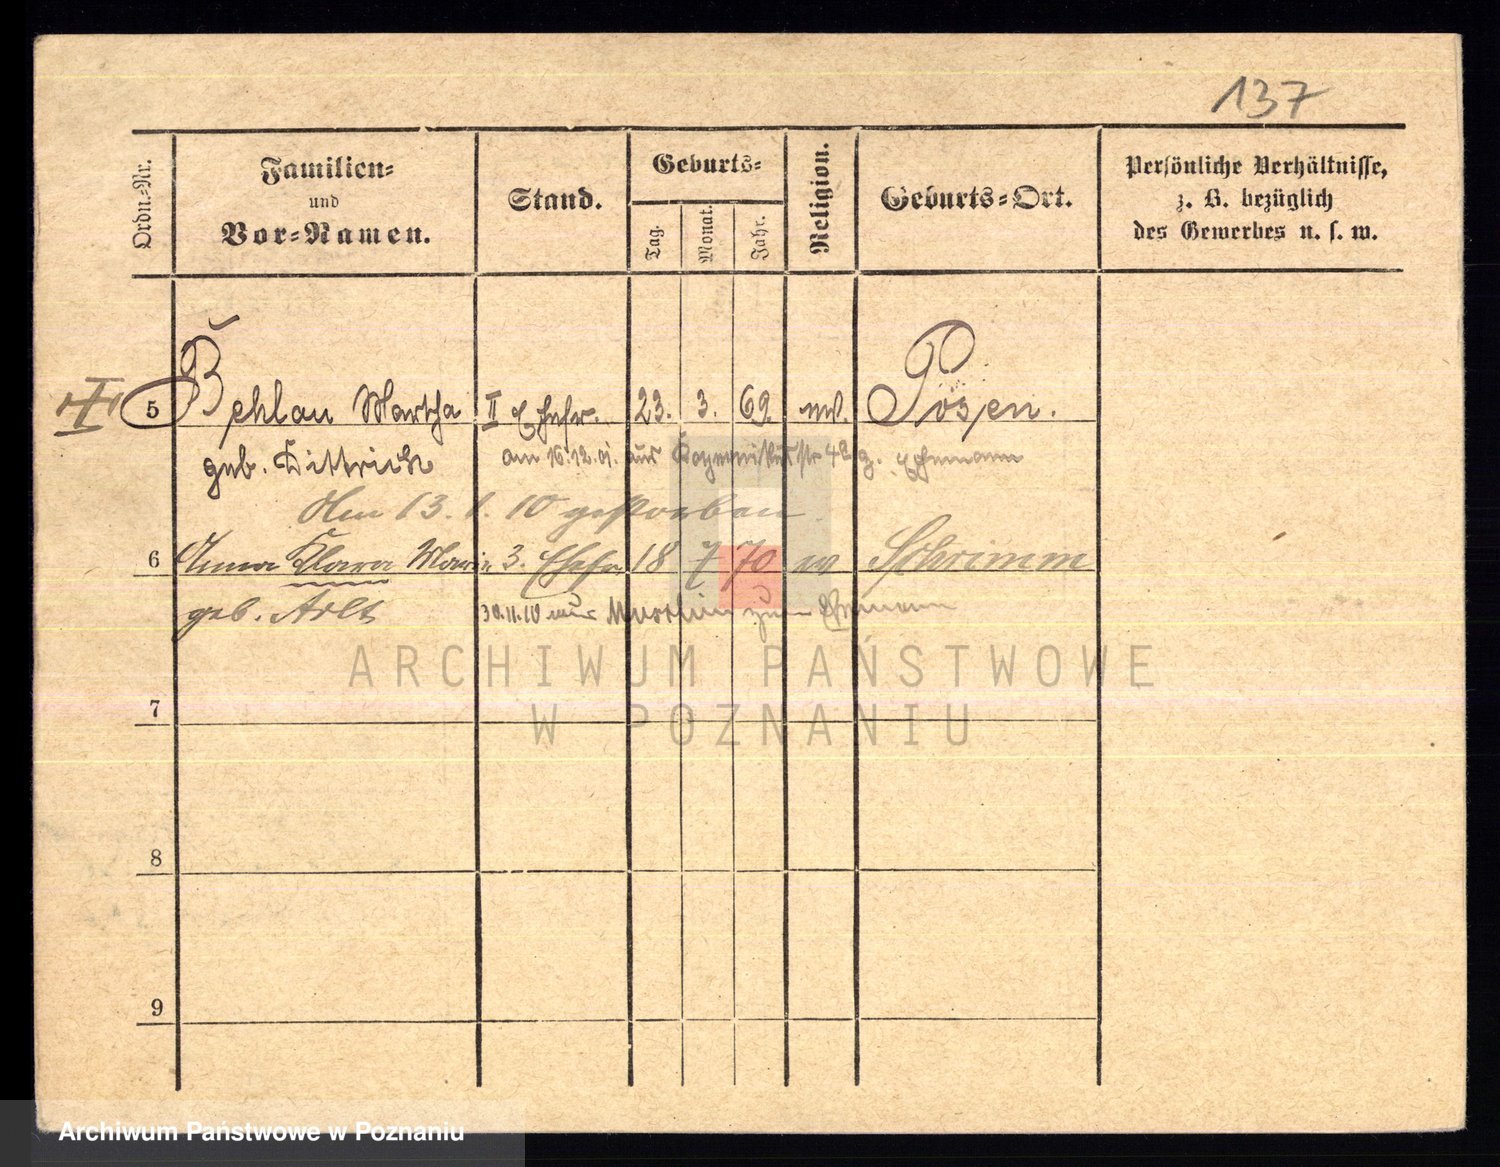 137
Ordn.-Nr.
Familien-
und
Vor-Namen.
Stand.
Geburts-
Tag.
Monat.
Jahr.
Religion.
Geburts-Ort.
Persönliche Verhältnisse,
z. B. bezüglich
des Gewerbes u. s. w.
5 Behlau Martha II Ehefr. 23. 3. 69. Posen.
geb. Dittrich am 16.12.01. aus Ehemann
Am 13. 1. 10 gestorben
6 Anna Klara Marie 3. Ehefr 18 7 70 Schrimm
geb. Arlt 30.11.10 aus zum Ehemann
ARCHIWUM PAŃSTWOWE
W POZNANIU
7
8
9
Archiwum Państwowe w Poznaniu